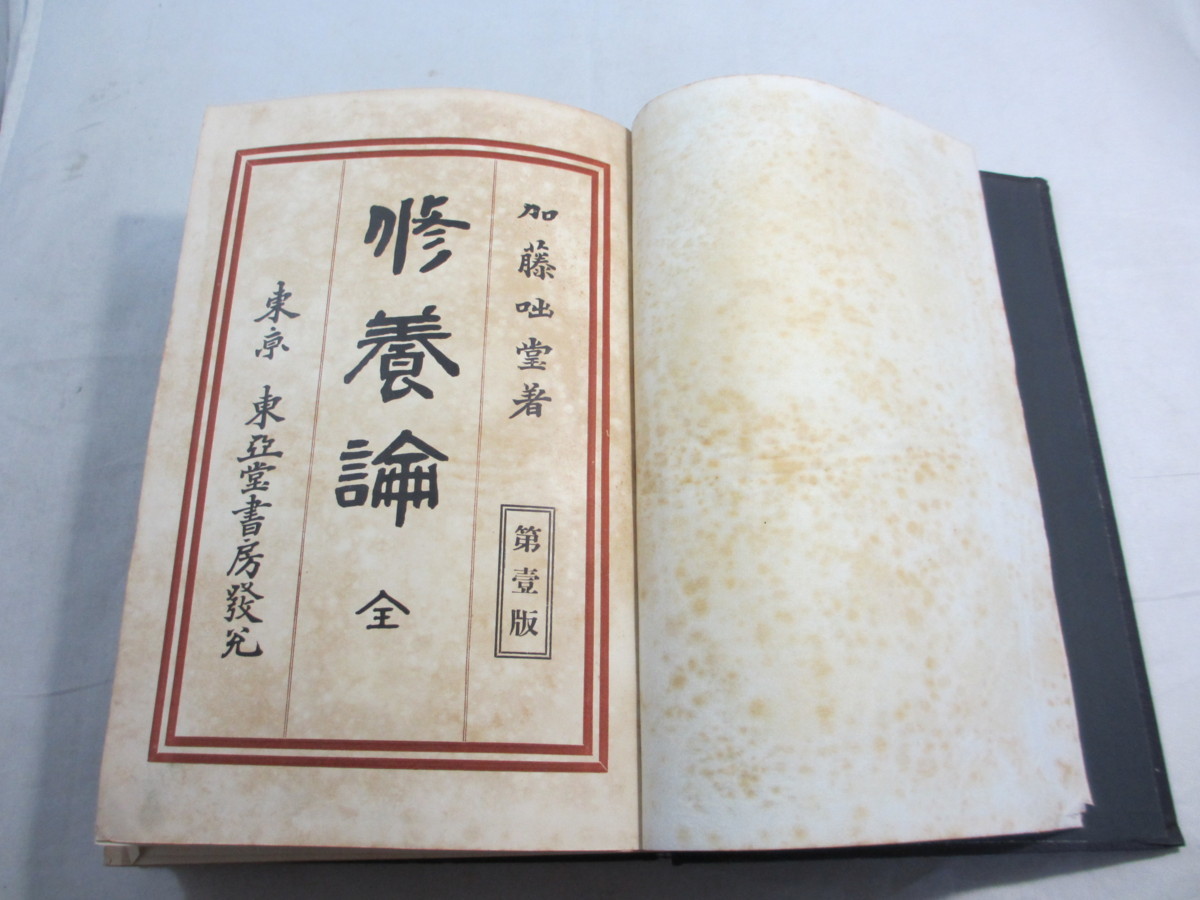 加藤咄堂著
第壹版
修養論 全
東京 東亞堂書房發兌